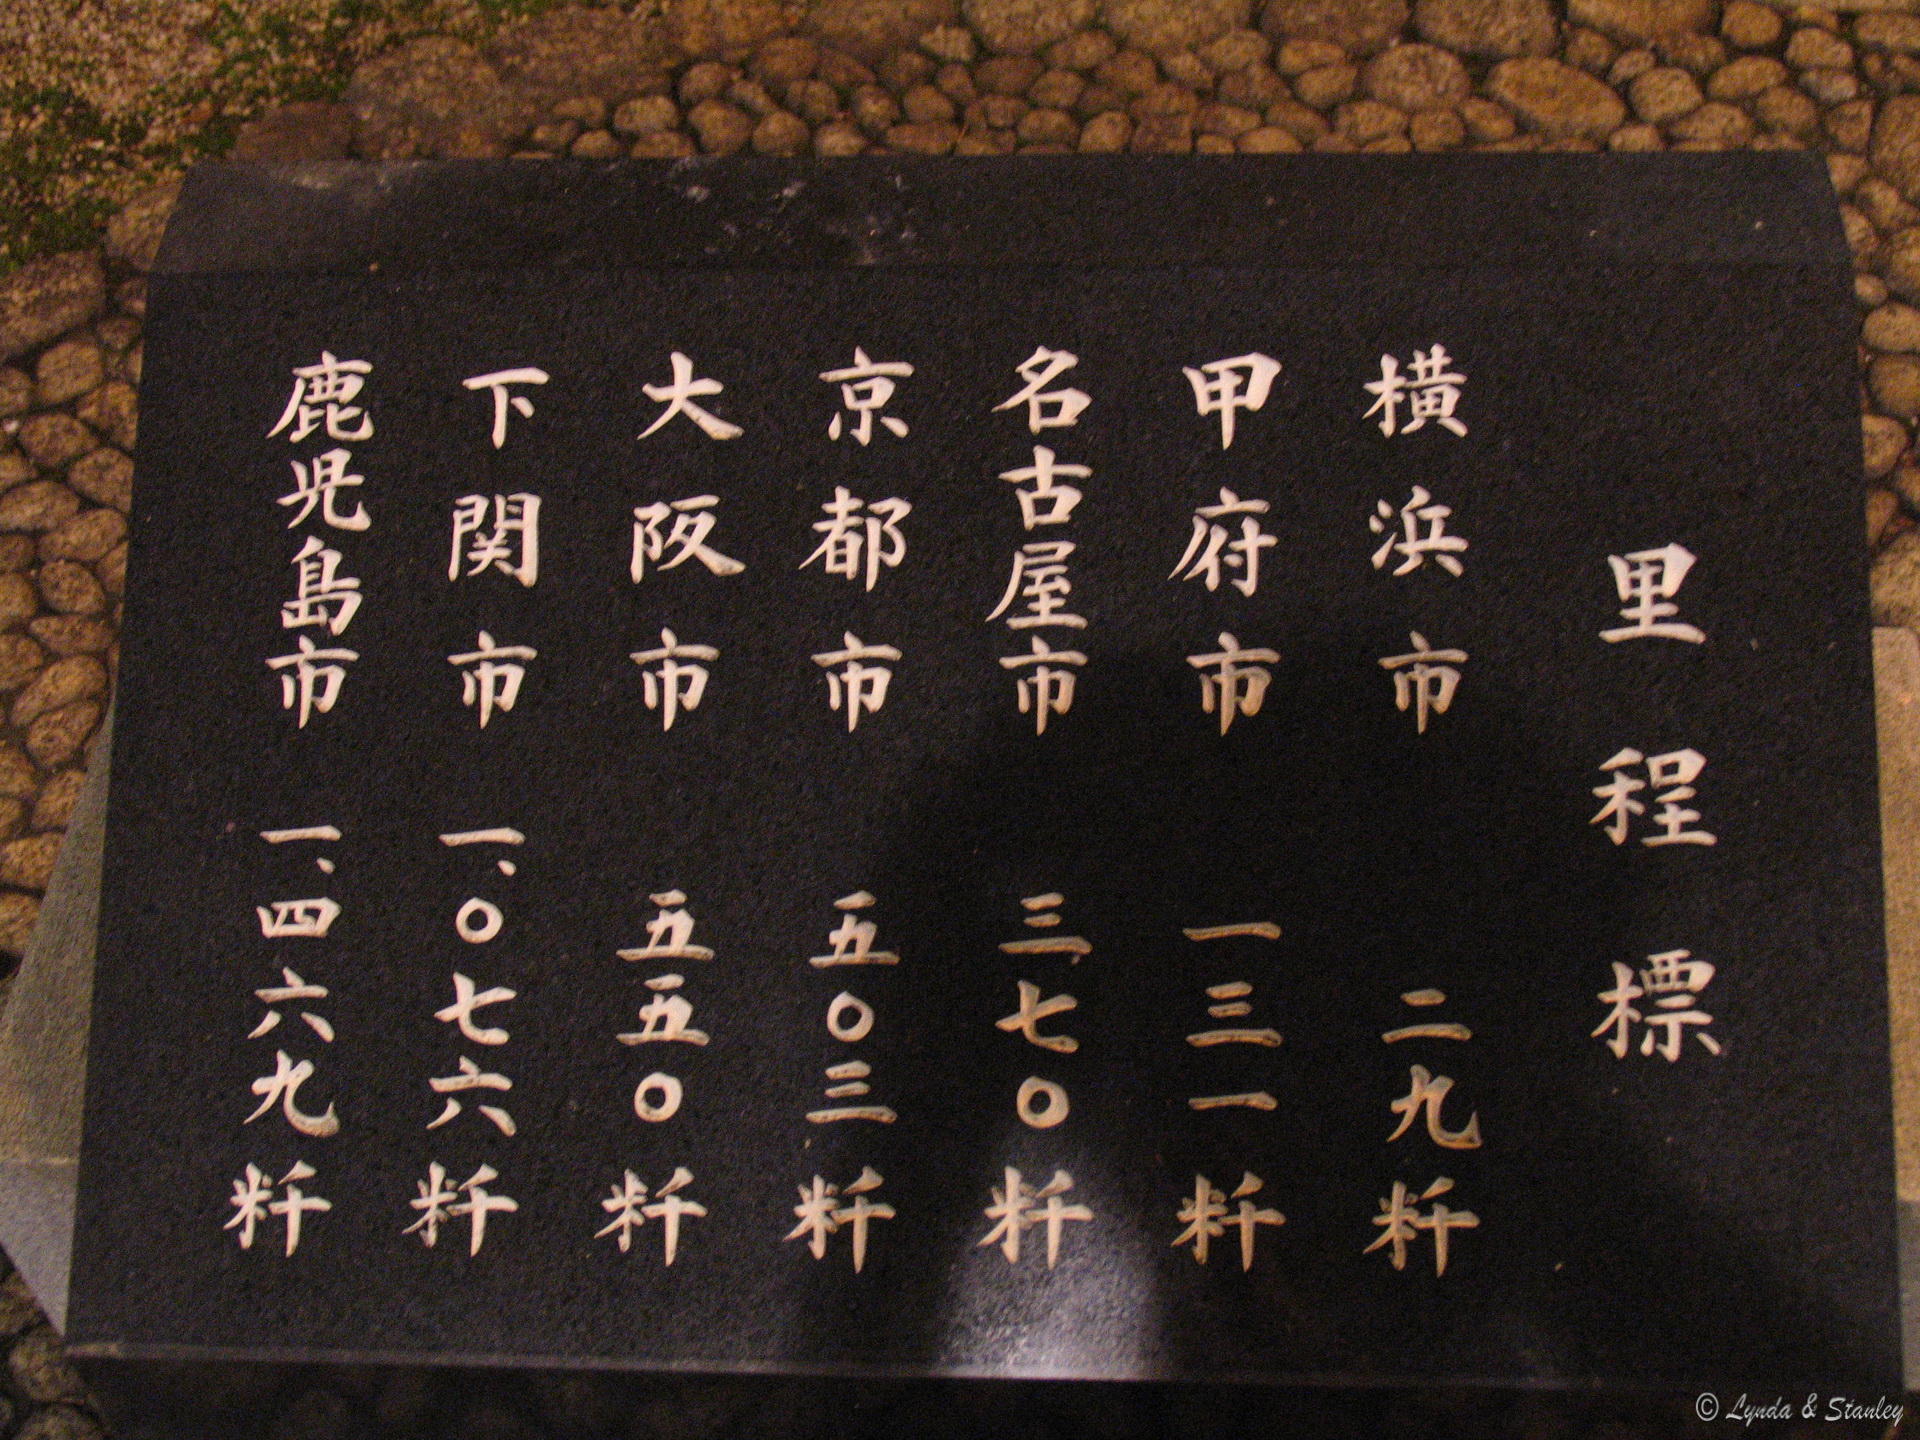 里程標
横浜市 二九粁
甲府市 一三一粁
名古屋市 三七〇粁
京都市 五〇三粁
大阪市 五五〇粁
下関市 一、〇七六粁
鹿児島市 一、四六九粁
© Lynda & Stanley